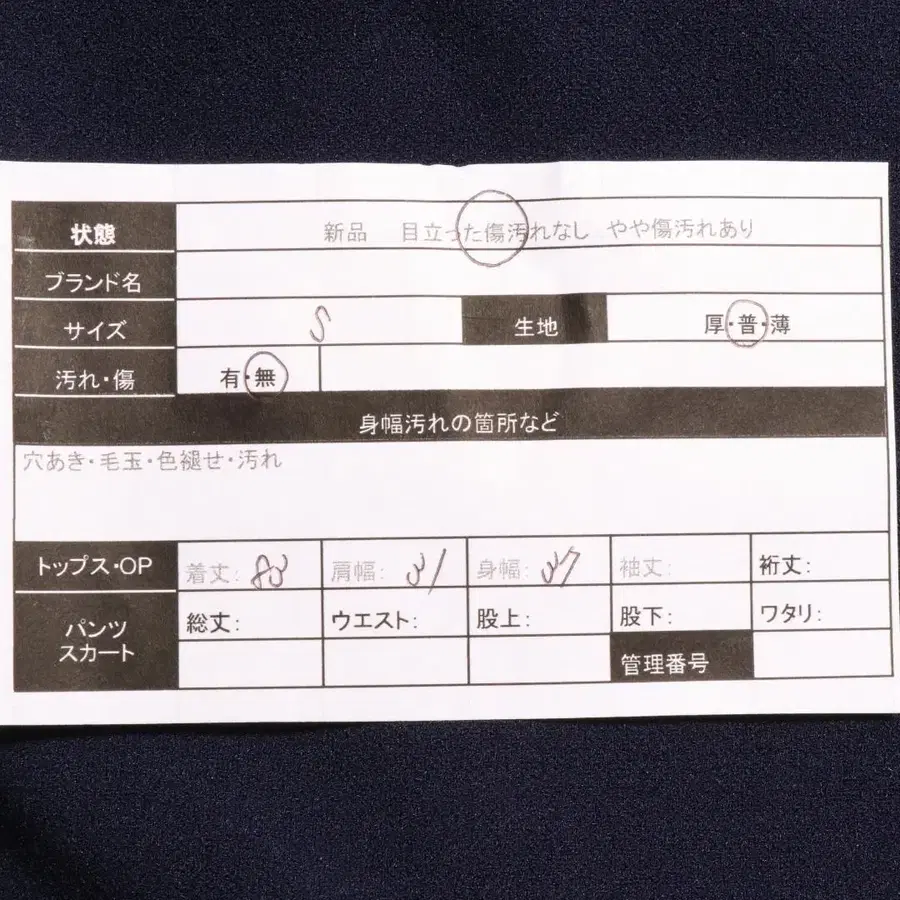 状態 新品 目立った傷汚れなし やや傷汚れあり
ブランド名
サイズ S 生地 厚・普・薄
汚れ・傷 有・無
身幅汚れの箇所など
穴あき・毛玉・色褪せ・汚れ
トップス・OP 着丈: 肩幅: 31 身幅: 37 袖丈: 裄丈:
パンツ スカート 総丈: ウエスト: 股上: 股下: ワタリ:
管理番号